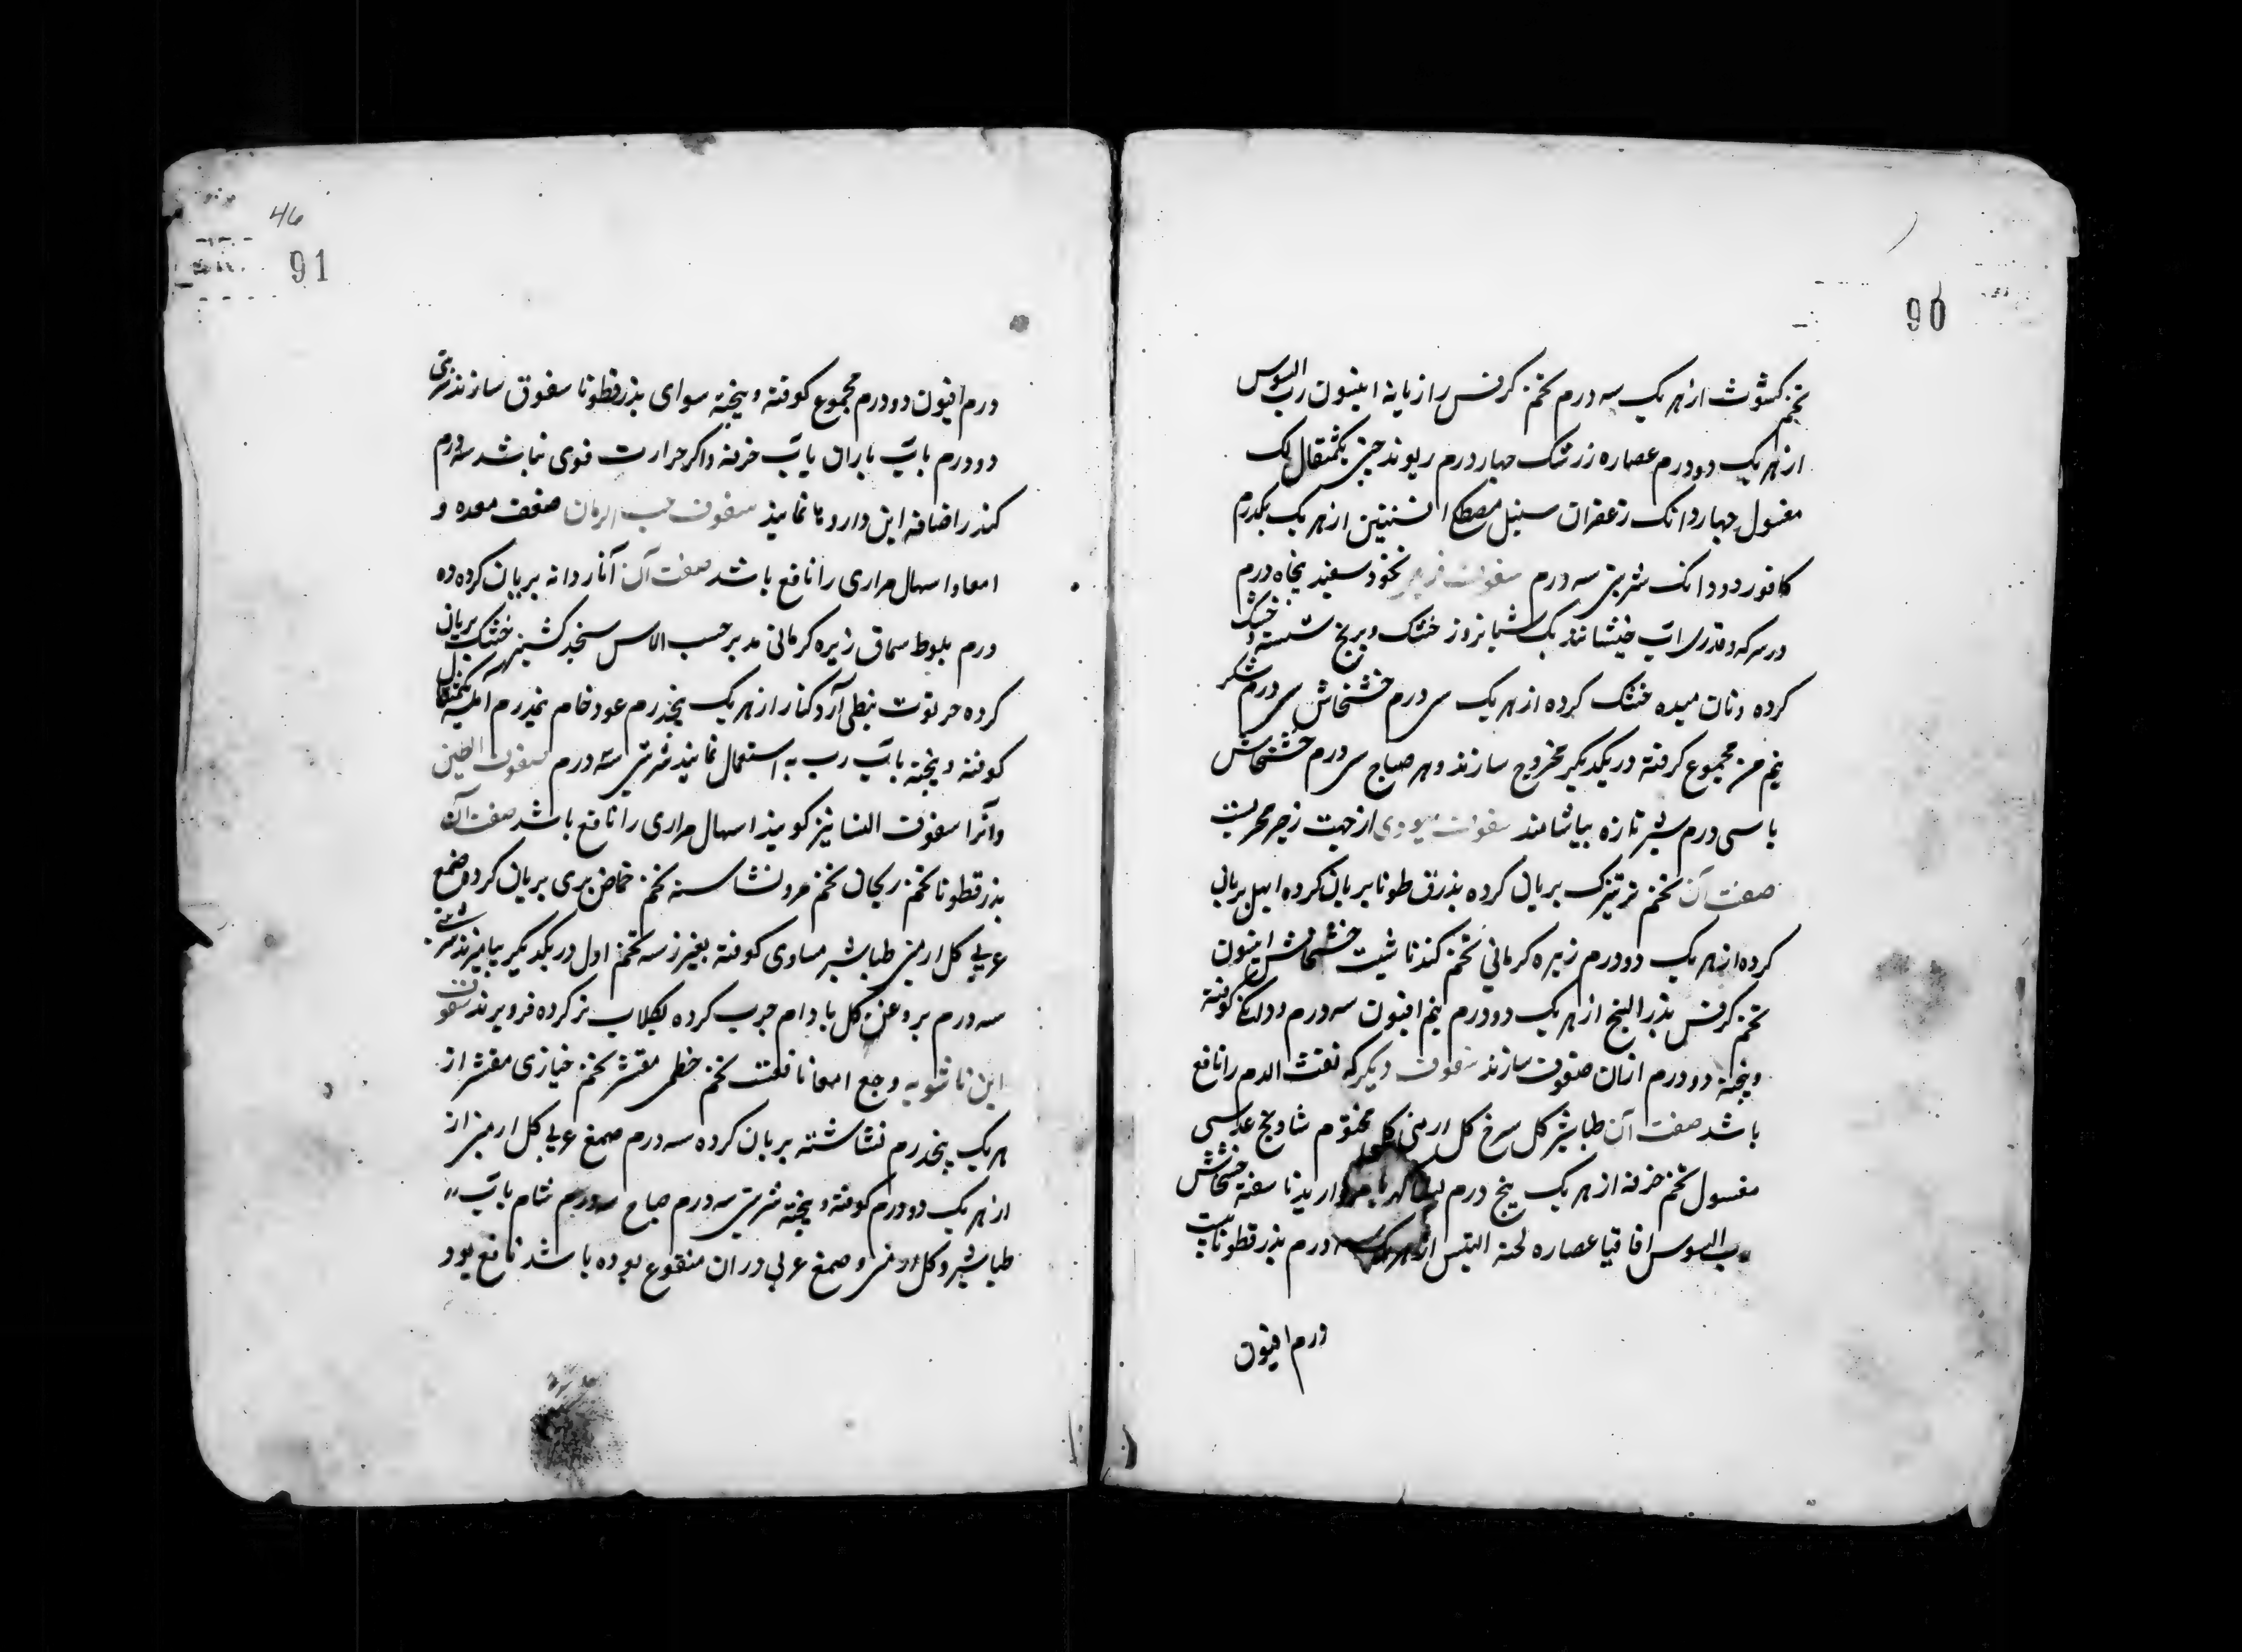 90
تخم کشوث از هر یک سه درم تخم کرفس رازیانه انیسون رب السوس
از هر یک دو درم عصاره زرشک چهار درم ریوند چینی یکمثقال لک
مغسول چهار دانک زعفران سنبل مصطکی افسنتین از هر یک یکدرم
کافور دو دانک شربتی سه درم سفوف نخود سفید پنجاه درم
در سرکه و قدری آب خیسانند یک شبانروز خشک و برنج شسته و خشک
کرده و نان میده خشک کرده از هر یک سی درم خشخاش سی درم شکر
نیم من مجموع کوفته در یکدیگر مخروج سازند و هر صباح سی درم خشخاش
با سی درم شیر تازه بیاشامند سفوف از جهت زحیر مجربست
صفت آن تخم تره تیزک بریان کرده بذرق طونا بریان کرده ابهل بریان
کرده از هر یک دو درم زیره کرمانی تخم کندنا شبت خشخاش انیسون
تخم کرفس بذر البنج از هر یک دو درم نیم افیون سه درم و دانک کوفته
و بیخته دو درم ازان صفوف سازند سفوف دیکر که نفث الدم را نافع
باشد صفت آن طباشیر کل سرخ کل ارمنی کل مختوم شادنج عدسی
مغسول تخم خرفه از هر یک پنج درم کهربا مروارید ناسفته خشخاش
رب السوس اقاقیا عصاره لحیة التیس از هر یک سه درم بذر قطونا بیست
درم افیون
46
91
درم افیون دو درم مجموع کوفته و بیخته سوای بذر قطونا سفوف سازند شربتی
دو درم بآب باران یا آب خرفه و اکر حرارت قوی نباشد سه درم
کندر اضافه این داروها نمایند سفوف حب الرمان ضعف معده و
امعا و اسهال مراری را نافع باشد صفت آن آنار دانه بریان کرده ده
درم بلوط سماق زیره کرمانی مدبر حب الاس سنجد کشنیز خشک بریان
کرده خرنوب نبطی آرد کنار از هر یک پنجدرم عود خام نیم درم
کوفته و بیخته بآب رب به استعمال نمایند شربتی سه درم سفوف الطین
و آنرا سفوف النسا نیز کویند اسهال مراری را نافع باشد صفت آن
بذر قطونا تخم ریحان تخم مرو نشاسته تخم حماض بری بریان کرده صمغ
عربی کل ارمنی طباشیر مساوی کوفته بغیر از سه تخم اول در یکدیکر بیامیزند شربتی
سه درم بروغن کل بادام چرب کرده بکلاب تر کرده فرو برند سفوف
این ناشویه وجع امعا نافعست تخم خطمی مقشر تخم خبازی مقشر از
هر یک پنجدرم نشاشته بریان کرده سه درم صمغ عربی کل ارمنی از
از هر یک دو درم کوفته و بیخته شربتی سه درم صباح سه درم شام بآب
طباشیر و کل ارمنی و صمغ عربی در ان منقوع بوده باشد نافع بود